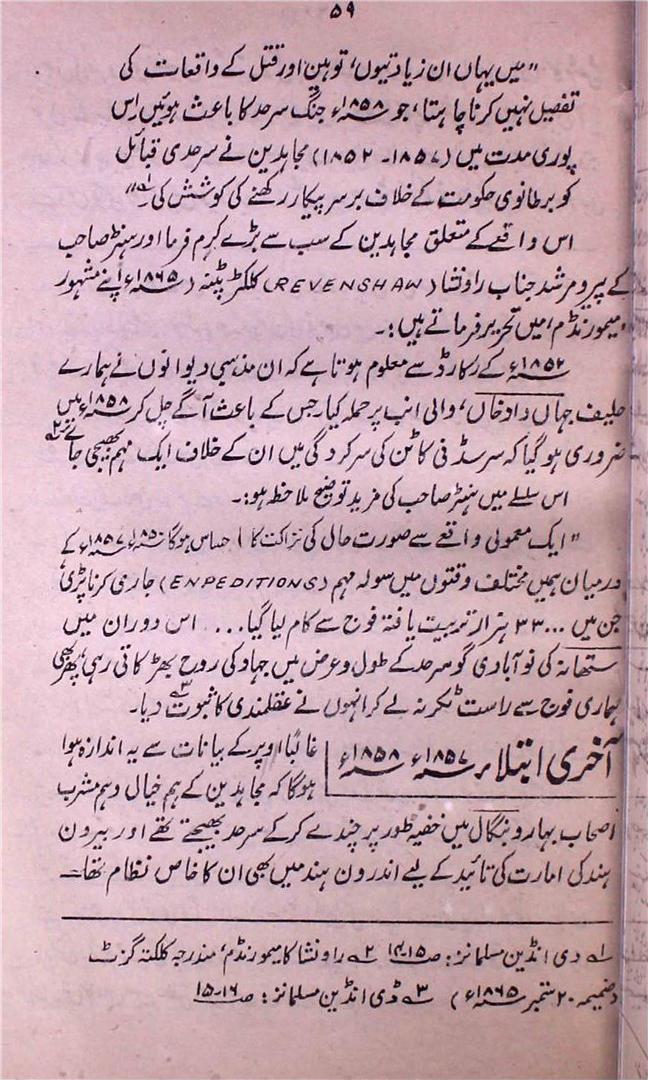 ۵۹
"میں یہاں ان زیادتیوں، توہین اور قتل کے واقعات کی
تفصیل نہیں کرنا چاہتا، جو ۱۸۵۸ء جنگ سرحد کا باعث ہوئیں اس
پوری مدت میں (۱۸۵۷۔ ۱۸۵۲) مجاہدین نے سرحدی قبائل
کو برطانوی حکومت کے خلاف برسر پیکار رکھنے کی کوشش کی۔۱"
اس واقعے کے متعلق مجاہدین کے سب سے بڑے کرم فرما اور ہنٹر صاحب
کے پیر و مرشد جناب راونشا (REVENSHAW) کلکٹر پٹنہ (۱۸۶۵ء اپنے مشہور
"میمورنڈم" میں تحریر فرماتے ہیں:۔
۱۸۵۲ء کے رکارڈ سے معلوم ہوتا ہے کہ ان مذہبی دیوانوں نے ہمارے
حلیف جہاں داد خاں، والی انب پر حملہ کیا، جس کے باعث آگے چل کر ۱۸۵۸ء میں
ضروری ہو گیا کہ سر سڈنی کاٹن کی سرکردگی میں ان کے خلاف ایک مہم بھیجی جائے۔۲
اس سلسلے میں ہنٹر صاحب کی مزید توضیح ملاحظہ ہو:۔
"ایک معمولی واقعے سے صورت حال کی نزاکت کا احساس ہوگا ۱۸۵۰ء ۱۸۵۷ء کے
درمیان ہمیں مختلف وقتوں میں سولہ مہم (ENPEDITIONS) جاری کرنا پڑی،
جن میں ...۳۳ ہزار تربیت یافتہ فوج سے کام لیا گیا... اس دوران میں
ستھانہ کی نو آبادی گو سرحد کے طول و عرض میں جہاد کی روح بھڑکاتی رہی، پھر بھی
ہماری فوج سے راست ٹکر نہ لے کر انہوں نے عقلمندی کا ثبوت دیا۔۳
آخری ابتلاء ۱۸۵۷ء ۱۸۵۸ء
غالباً اوپر کے بیانات سے یہ اندازہ ہوا
ہوگا کہ مجاہدین کے ہم خیال و ہم مشرب
اصحاب بہار و بنگال میں خفیہ طور پر چندے کر کے سرحد بھیجتے تھے اور بیرون
ہند کی امارت کی تائید کے لیے اندرون ہند میں بھی ان کا خاص نظام تھا۔
۱ دی انڈین مسلمانز: ص۱۵۔۱۴ ۲ راونشا کا میمورنڈم، مندرجہ کلکتہ گزٹ
(ضمیمہ ۲۰ ستمبر ۱۸۶۵ء) ۳ ڈی انڈین مسلمانز: ص۱۶۔۱۵